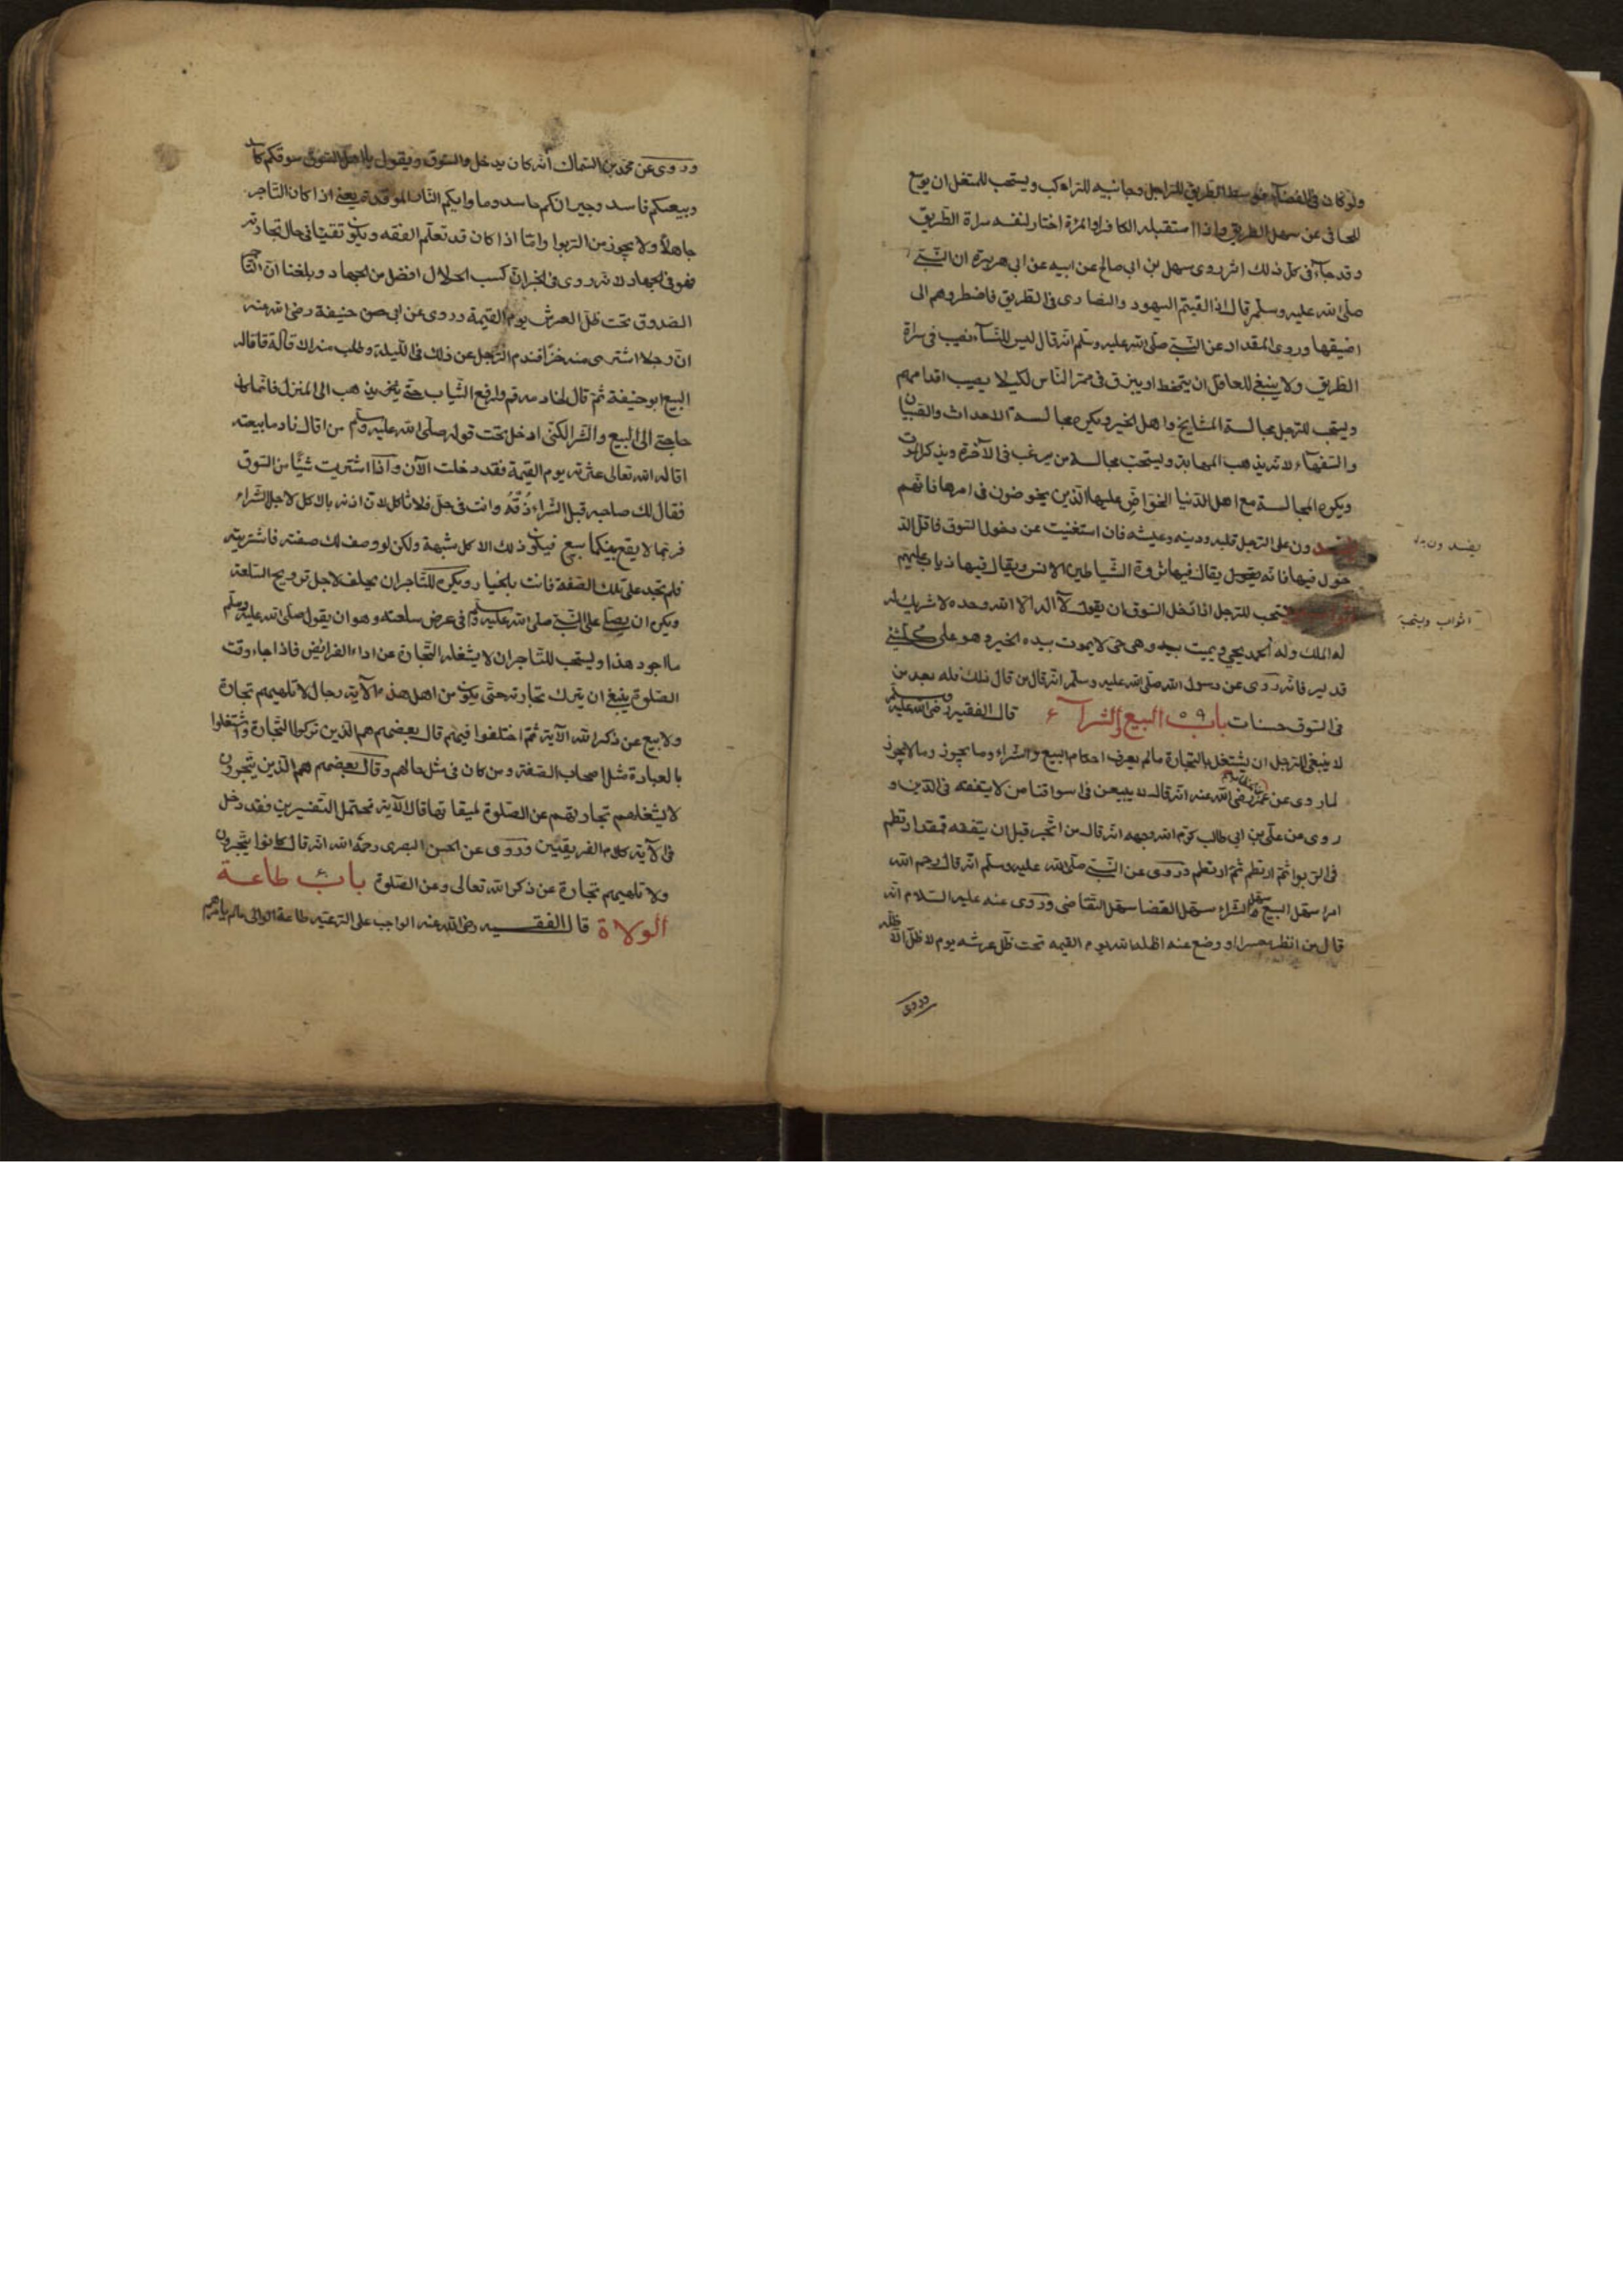 ولو كان فى الفضآء فوسط الطريق للراجل وجانبيه للراكب ويستحب للمتنعل ان يوسع
للحافى عن سهل الطريق واذا استقبله الكافر او المرئة اختار لنفسه سراة الطريق
وقد جآء فى كل ذلك اثر روى سهيل بن ابى صالح عن ابيه عن ابى هريرة ان النبى
صلى الله عليه وسلم قال اذا لقيتم اليهود والنصارى فى الطريق فاضطروهم الى
اضيقها وروى المقداد عن النبى صلى الله عليه وسلم انه قال ليس للنسآء نصيب فى سراة
الطريق ولا ينبغى للعاقل ان يتمخط او يبزق فى ممر الناس لكيلا يصيب اقدامهم
ويستحب للرجل مجالسة المشايخ واهل الخير ويكره مجالسة الاحداث والصبيان
والسفهاء لانه يذهب المهابة ويستحب مجالسة من يرغب فى الآخرة ويذكر الموت
ويكره المجالسة مع اهل الدنيا الحراص عليها الذين يخوضون فى امرها فانهم
يفسدون على الرجل قلبه ودينه وعيشه فان استغنيت عن دخول السوق فاقل الد
يفسدون
خول فيها فانه يقال فيها مردة الشياطين الانس ويقال فيها ذياب عليهم
الثواب ويستحب للرجل اذا دخل السوق ان يقول لا اله الا الله وحده لا شريك له
الثواب ويستحب
له الملك وله الحمد يحيى ويميت بيده وهى حى لا يموت بيده الخير وهو على كل شئ
قدير فانه روى عن رسول الله صلى الله عليه وسلم انه قال من قال ذلك فله بعدد من
فى السوق حسنات باب ٥٩ البيع والشرآء قال الفقيه رضى الله عليه
لا ينبغى للرجل ان يشتغل بالتجارة مالم يعرف احكام البيع والشراء وما يجوز وما لا يجوز
لما روى عن عمر رضى الله عنه انه قال لا يبيعن فى اسواقنا من لا يتفقه فى الدين و
روى عن على بن ابى طالب كرم الله وجهه انه قال من اتجر قبل ان يتفقه فقد ارتطم
فى الربوا ثم ارتطم ثم ارتطم وروى عن النبى صلى الله عليه وسلم انه قال رحم الله
امرا سهل البيع سهل الشراء سهل القضا سهل التقاضى وروى عنه عليه السلام انه
قال من انظر معسرا او وضع عنه اظله الله يوم القيمه تحت ظل عرشه يوم لا ظل الا ظله
وروى
وروى عن محمد بن السماك انه كان يدخل السوق ويقول يا اهل السوق سوقكم كاسد
وبيعكم فاسد وجيرانكم حاسد وماوايكم النار الموقدة يعنى اذا كان التاجر
جاهلا ولا يحوز من الربوا واما اذا كان قد تعلم الفقه ويكون تقيا فى حال تجارته
فهو فى الجهاد لانه روى فى الخبر ان كسب الحلال افضل من الجهاد وبلغنا ان التاجر
الصدوق تحت ظل العرش يوم القيمة وروى عن ابى حنيفة رضى الله عنه
ان رجلا اشترى منه خزا فندم الرجل عن ذلك فى الليلة وطلب منه الاقالة فاقاله
البيع ابو حنيفة ثم قال لخادمه قم وارفع الثياب حتى نذهب الى المنزل فانما كان
حاجتى الى البيع والشرا لكنى ادخل تحت قوله صلى الله عليه وسلم من اقال نادما بيعته
اقاله الله تعالى عثرته يوم القيمة فقد دخلت الآن واذا اشتريت شيئا من السوق
فقال لك صاحبه قبل الشراء ذقه وانت فى حل فلا تاكل لان اذنه باكل لاجل الشراء
فربما لا يقع بينكما بيع فيكون ذلك الاكل شبهة ولكن لو وصف لك صفته فاشتريته
فلم تجد على تلك الصفة فانت بالخيار ويكره للتاجر ان يحلف لاجل ترويح السلعة
ويكره ان يصلى على النبى صلى الله عليه وسلم فى عرض سلعته وهو ان يقول صلى الله عليه وسلم
ما اجود هذا ويستحب للتاجر ان لا يشغله التجارة عن اداء الفرائض فاذا جاء وقت
الصلوة ينبغى ان يترك تجارته حتى يكون من اهل هذه الآية رجال لا تلهيهم تجارة
ولا بيع عن ذكر الله الآية ثم اختلفوا فيهم قال بعضهم هم الذين تركوا التجارة واشتغلوا
بالعبادة مثل اصحاب الصفة ومن كان فى مثل حالهم وقال بعضهم هم الذين يتجرون
لا يشغلهم تجارتهم عن الصلوة لميقاتها قال الآية تحتمل التفسيرين فقد دخل
فى الآية كلام الفريقين وروى عن الحسن البصرى رحمه الله انه قال كانوا يتجرون
ولا تلهيهم تجارة عن ذكر الله تعالى وعن الصلوة باب طاعة
الولاة قال الفقيه رضى الله عنه الواجب على الرعية طاعة الوالى مالم يامرهم